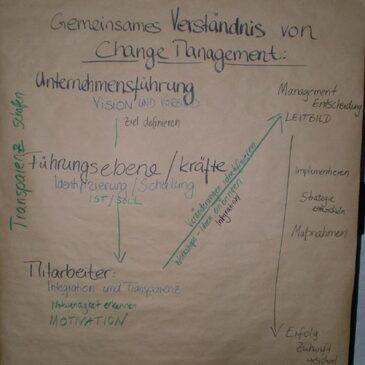 Gemeinsames Verständnis von
Change Management:
Unternehmensführung
VISION UND
Ziel definieren
Führungsebene / kräfte
Identifizierung / Schulung
IST / SOLL
Mitarbeiter:
Integration und Transparenz
Notwendigkeit erkennen
MOTIVATION
Transparenz schaffen
Veränderungen identifizieren
Ideen einbringen
Integration
Management
Entscheidung
LEITBILD
Implementieren
Strategie
Maßnahmen
Erfolg
Zukunft